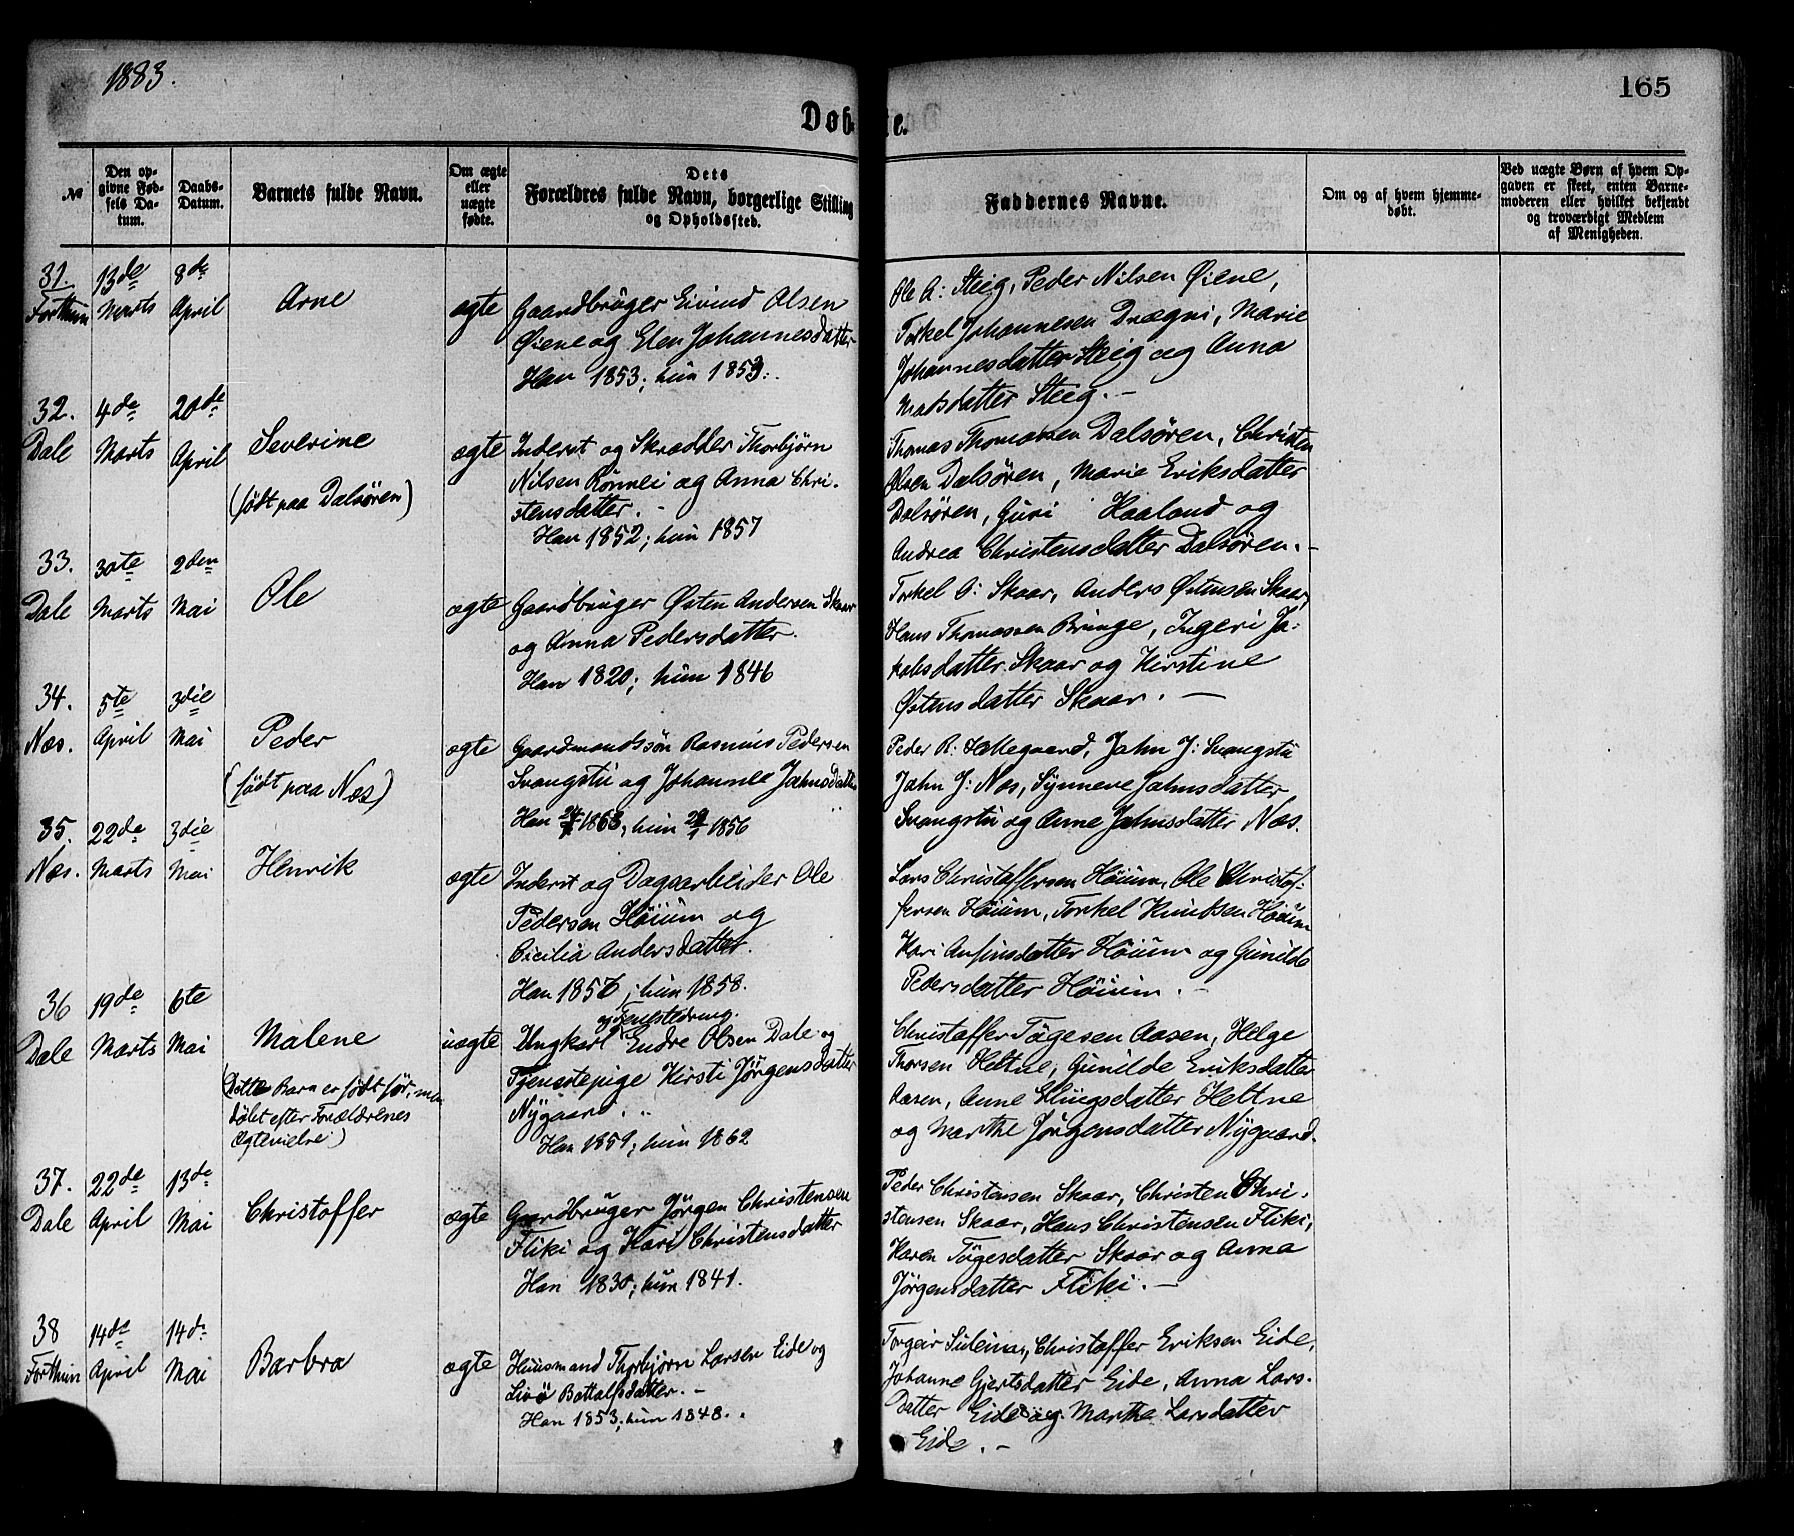 1883.
165
Døbte.
№
Den opgivne Fødsels Datum.
Daabs-Datum.
Barnets fulde Navn.
Om ægte eller uægte fødte.
Dets
Forældres fulde Navn, borgerlige Stilling
og Opholdssted.
Faddernes Navne.
Om og af hvem hjemmedøbt.
Ved uægte Børn af hvem Op-
gaven er skeet, enten Barne-
moderen eller hvilket bekjendt
og troværdigt Medlem
af Menigheden.
31. 13de 8de
Forthun Marts April Arne ægte Gaardbruger Eivind Olsen
Øiene og Elen Johannesdatter
Han 1853; hun 1853.
Ole A: Steig, Peder Nilsen Øiene,
Torkel Johannesen Drægni, Marie
Johannesdatter Steig og Anna
Madsdatter Steig. -
32. 4de 20de
Dale Marts April Severine
(født paa Dalsøren)
ægte Inderst og Skrædder Thorbjørn
Nilsen Rønnei og Anna Chri-
stensdatter. -
Han 1852; hun 1857
Thomas Thomassen Dalsøren, Christen
Olsen Dalsøren, Marie Eriksdatter
Dalsøren, Guri Haaland og
Andrea Christensdatter Dalsøren. -
33. 30te 2den
Dale Marts Mai Ole ægte Gaardbruger Østen Andersen Skaar
og Anna Pedersdatter.
Han 1820; hun 1846
Torkel A: Skaar, Anders Østensen Skaar,
Hans Thomassen Bringe, Ingeri Ja-
kobsdatter Skaar og Kirstine
Østensdatter Skaar. -
34. 5te 3die
Næs. April Mai Peder
(født paa Næs)
ægte Gaardmandssøn Rasmus Pedersen
Svangstu og Johanne Jahnsdatter
Han 1863, hun 1856
Peder R: Hillegaard, Jahn J: Svangstu
Jahn J: Næs, Synneve Jahnsdatter
Svangstu og Anne Jahnsdatter Næs.
35. 22de 3die
Næs. Marts Mai Henrik ægte Inderst og Dagsarbeider Ole
Pedersen Høium og
Cicilia Andersdatter.
Han 1856; hun 1858.
Lars Christoffersen Høium, Ole Christof-
fersen Høium, Torkel Knudsen Høium
Kari Anfinsdatter Høium og Gunilde
Pedersdatter Høium. -
36 19de 6te
Dale Marts Mai Malene
(Dette Barn er født før, men
døbt efter Forældrenes
Ægtevielse)
uægte Ungkarl Endre Olsen Dale og
Tjenestepige Kirsti Jørgensdatter
Nygaard.
Han 1859; hun 1862
Christoffer Tøgesen Aasen, Helge
Thorsen Heltne, Gunilde Eriksdatter
Aasen, Anne Ellingsdatter Heltne
og Marthe Jørgensdatter Nygaard.
37. 22de 13de
Dale April Mai Christoffer ægte Gaardbruger Jørgen Christensen
Fliki og Kari Christensdatter
Han 1830; hun 1841.
Peder Christensen Skaar, Christen Chri-
stensen Skaar, Hans Christensen Fliki,
Karen Tøgesdatter Skaar og Anna
Jørgensdatter Fliki. -
38 14de 14de
Forthun April Mai Barbra ægte Huusmand Thorbjørn Larsen Eide og
Bottolfsdatter. -
Han 1853; hun 1848.
Torgeir Christoffer Eriksen Eide,
Johanne Gjertsdatter Eide, Anna Lars-
datter Eide og Marthe Larsdatter
Eide. -